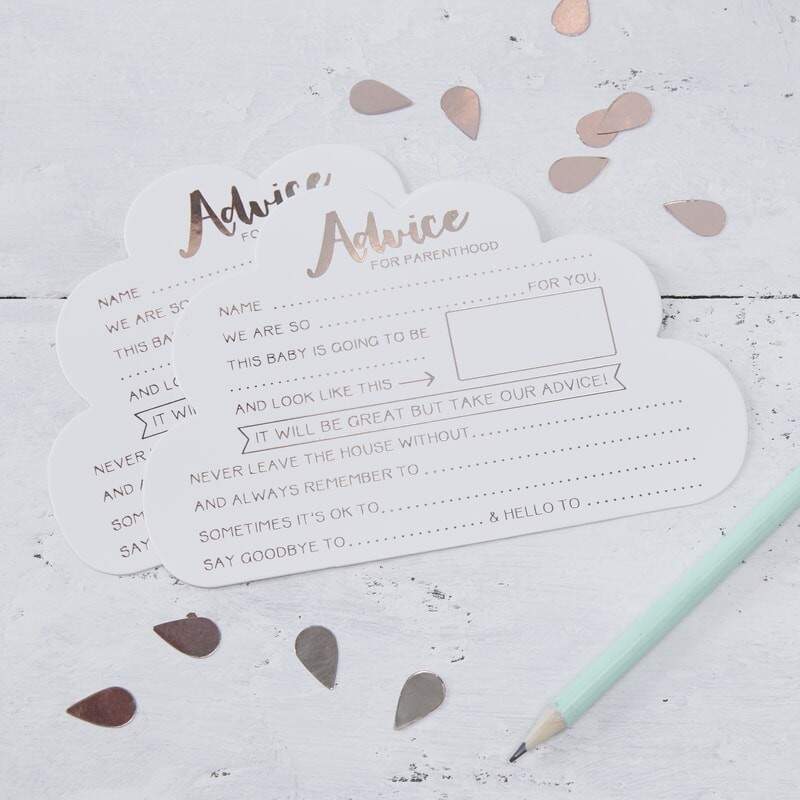 Advice
FOR PARENTHOOD
NAME
WE ARE SO FOR YOU.
THIS BABY IS GOING TO BE
AND LOOK LIKE THIS
IT WILL BE GREAT BUT TAKE OUR ADVICE!
NEVER LEAVE THE HOUSE WITHOUT
AND ALWAYS REMEMBER TO
SOMETIMES IT'S OK TO
SAY GOODBYE TO & HELLO TO
Advice
NAME
WE ARE SO
THIS
AND
IT
NEVER
AND
SAY